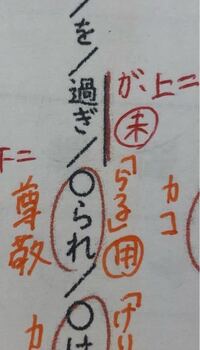 カコ
が、上二
未
「らる」用
「けり
／を／過ぎ／○られ／○け
下二
尊敬
カ